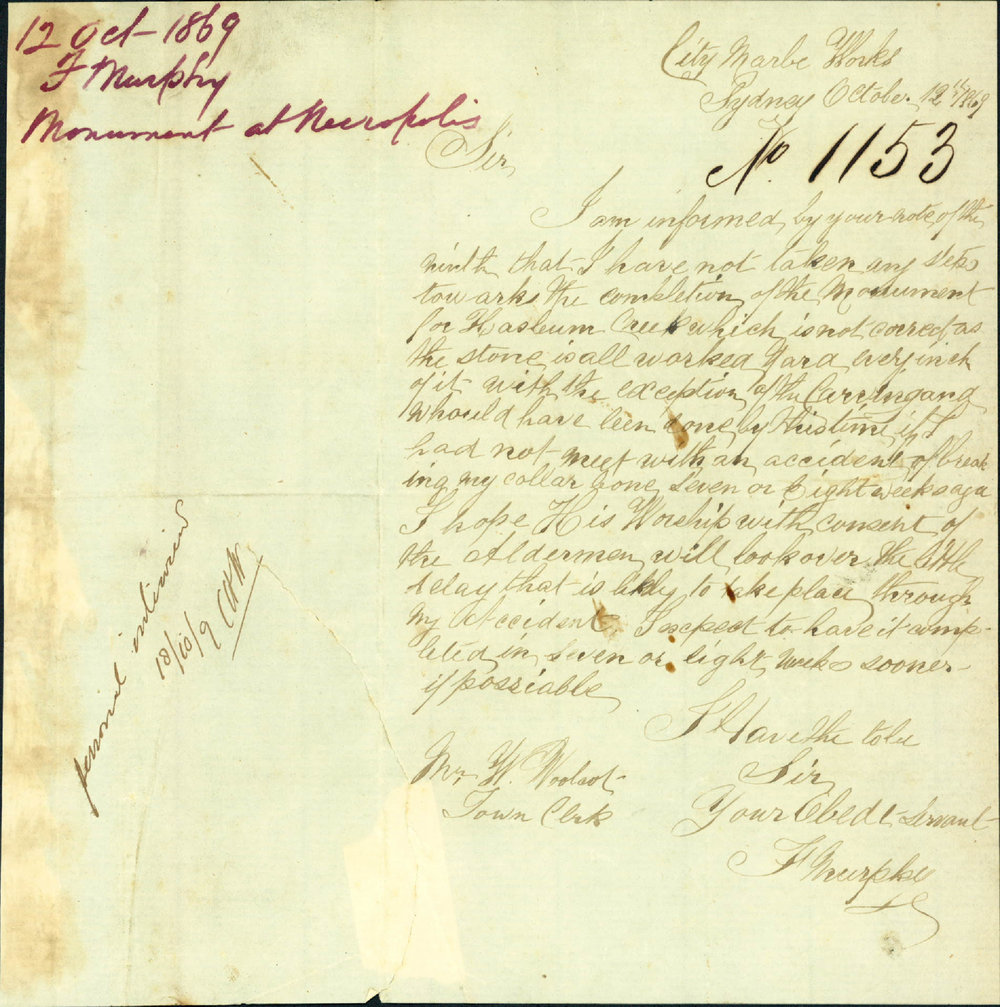 12 Oct - 1869
F Murphy
Monument at Necropolis
City Marbe Works
Sydney October 12th/1869
No. 1153
Sir
I am informed by your note of the
ninth that I have not taken any steps
towarks the completion of the Monument
for Hasleum Creek which is not correct as
the stone is all worked Hard every inch
of it with the exception of the Carving and
Whould have been done by this time if I
had not meet with an accident of break
ing my collar bone Seven or Eight weeks ago
I hope His Worship with consent of
the Aldermen will look over the little
delay that is likly to take place through
my Accident I expect to have it comp-
leted in Seven or eight weeks sooner
if possiable
I Have the to be
Sir
Your Obedt Servant
F Murphy
Mr W. Woolcot
Town Clerk
personal interview
18/10/9 CHW